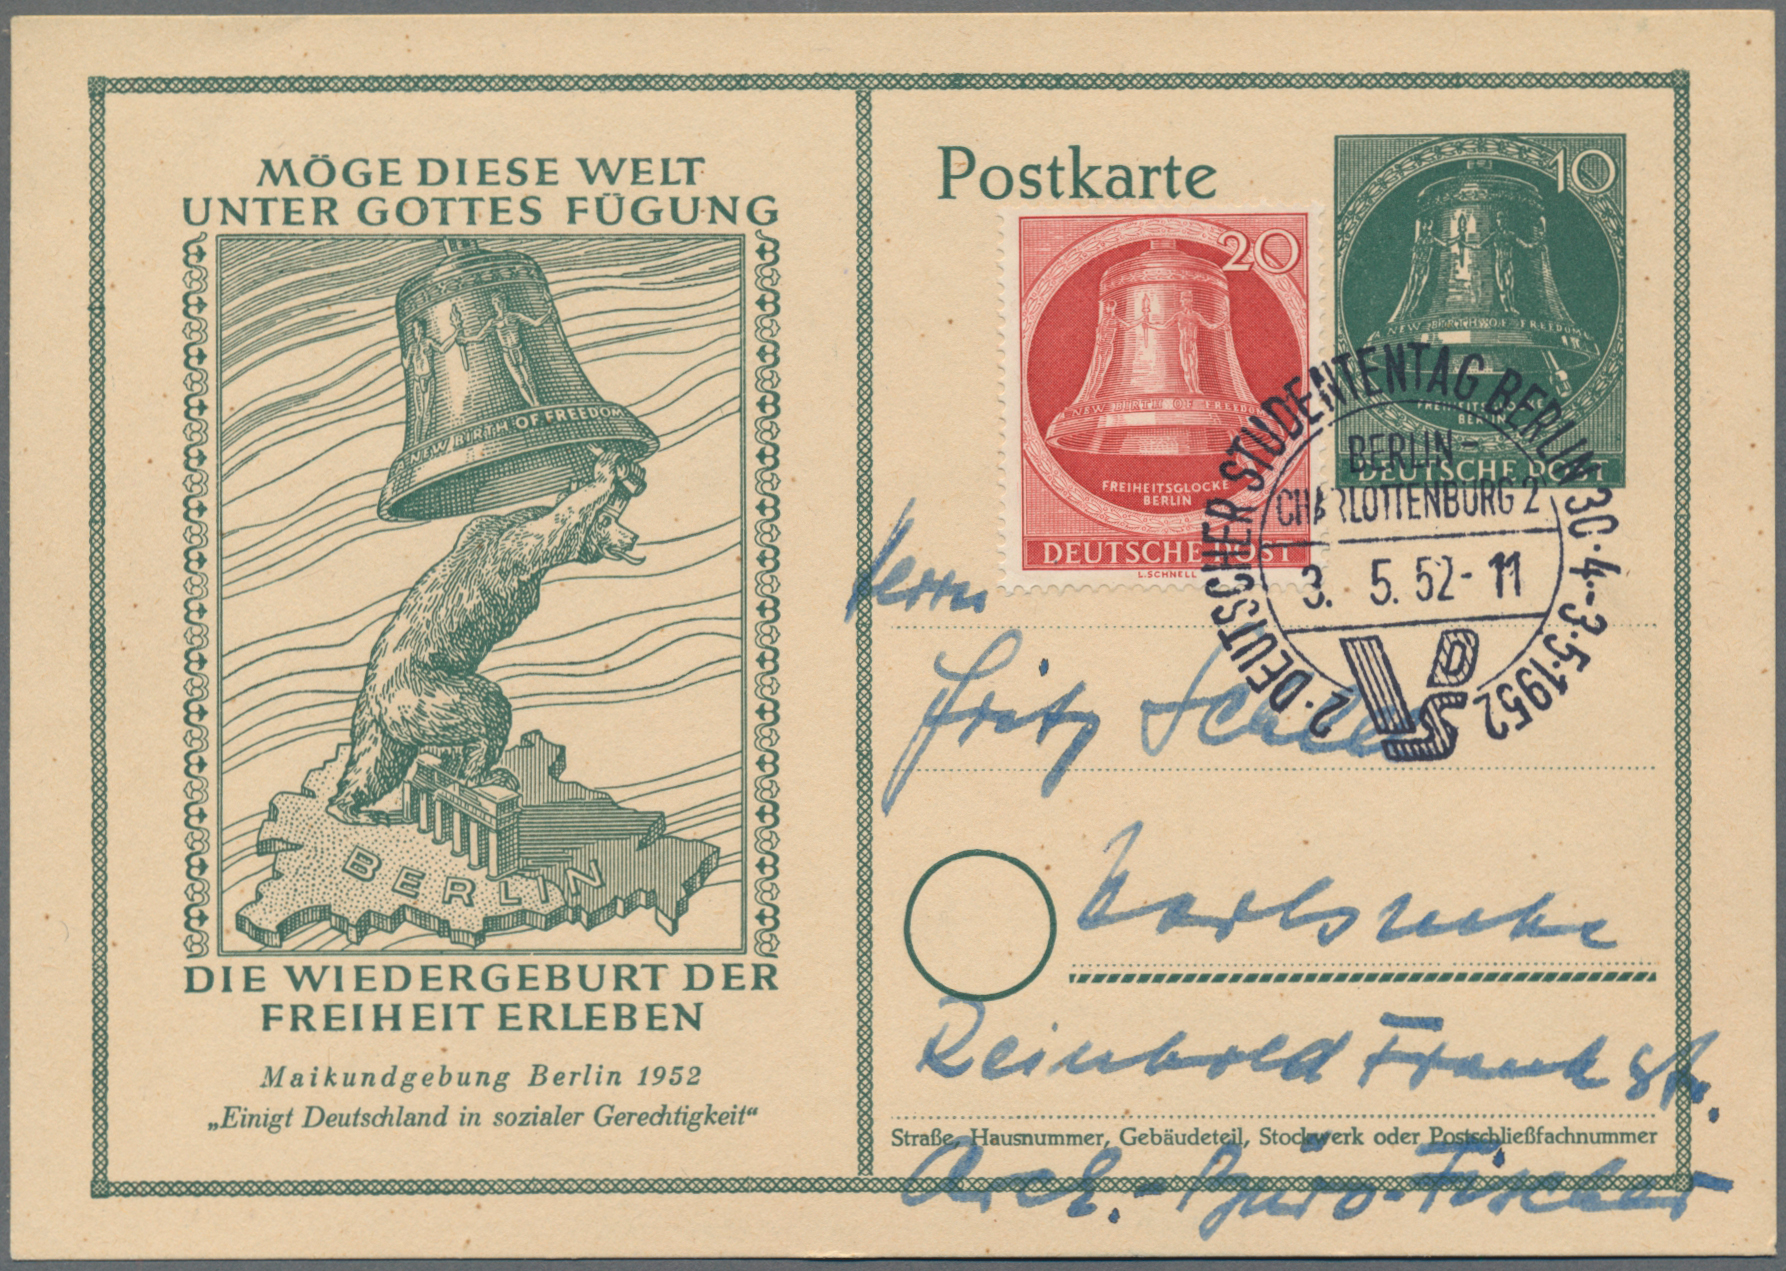 MÖGE DIESE WELT
UNTER GOTTES FÜGUNG
NEW BIRTH OF FREEDOM
BERLIN
DIE WIEDERGEBURT DER
FREIHEIT ERLEBEN
Maikundgebung Berlin 1952
„Einigt Deutschland in sozialer Gerechtigkeit“
Postkarte
20
NEW BIRTH OF FREEDOM
FREIHEITSGLOCKE
BERLIN
DEUTSCHE POST
L.SCHNELL
10
NEW BIRTH OF FREEDOM
FREIHEITSGLOCKE
BERLIN
DEUTSCHE POST
2. DEUTSCHER STUDENTENTAG BERLIN 30.4.-3.5.1952
BERLIN-
CHARLOTTENBURG 2
3. 5.52-11
Herrn
Fritz
Karlsruhe
Reinhold Frank Str.
Straße, Hausnummer, Gebäudeteil, Stockwerk oder Postschließfachnummer
Arch.-Büro-Fischer